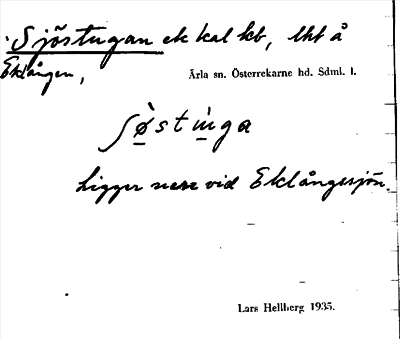 Sjöstugan ek kal kb, tht å
Eklången,
Ärla sn. Österrekarne hd. Sdml. l.
ʃø̀stù̱ga
Ligger nere vid Eklångesjön.
Lars Hellberg 1935.